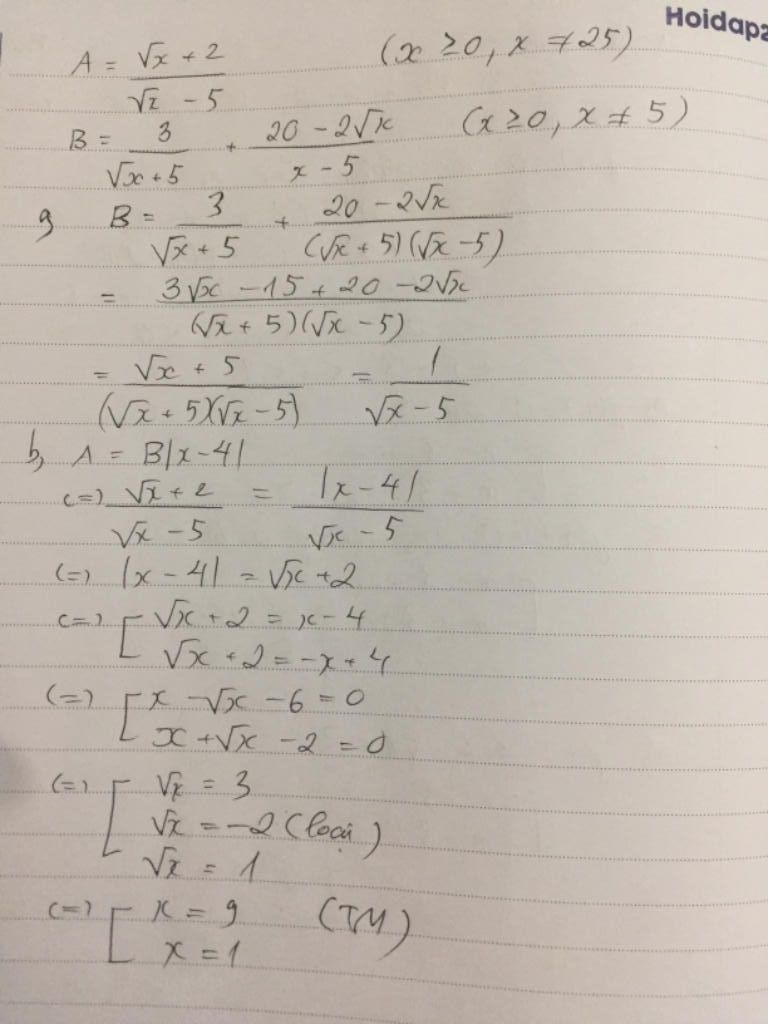 Hoidap2
A = (√x + 2)/(√x - 5) (x ≥ 0, x ≠ 25)
B = 3/(√x + 5) + (20 - 2√x)/(x - 5) (x ≥ 0, x ≠ 5)
a, B = 3/(√x + 5) + (20 - 2√x)/((√x + 5)(√x - 5))
= (3√x - 15 + 20 - 2√x)/((√x + 5)(√x - 5))
= (√x + 5)/((√x + 5)(√x - 5)) = 1/(√x - 5)
b, A = B|x - 4|
(=) (√x + 2)/(√x - 5) = |x - 4|/(√x - 5)
(=) |x - 4| = √x + 2
(=) [ √x + 2 = x - 4
√x + 2 = -x + 4
(=) [ x - √x - 6 = 0
x + √x - 2 = 0
(=) [ √x = 3
√x = -2 (loại)
√x = 1
(=) [ x = 9 (TM)
x = 1